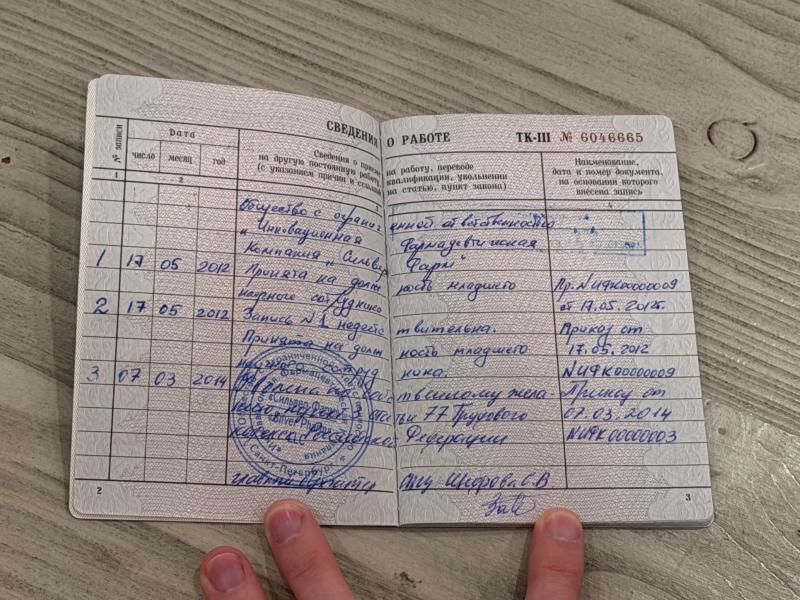 СВЕДЕНИЯ О РАБОТЕ ТК-III № 6046665
№ записи
Дата
число месяц год
Сведения о приеме на работу, переводе
на другую постоянную работу, квалификации, увольнении
(с указанием причин и ссылкой на статью, пункт закона)
Наименование,
дата и номер документа,
на основании которого
внесена запись
1 2 4
Общество с ограниченной ответственностью
„Инновационная Фармацевтическая
Компания „Сильвер Фарм"
1 17 05 2012 Принята на должность младшего Пр. NИФК00000009
научного сотрудника от 17.05.2012г.
2 17 05 2012 Запись N1 недействительна. Приказ от
Принята на должность младшего 17.05.2012
NИФК00000009
3 07 03 2014 Приказ от
статьи 77 Трудового 07.03.2014
кодекса Российской Федерации NИФК00000003
«Сильвер Фарм»
Silver Pharm
Санкт-Петербург
главный бухгалтер С.В
2 3